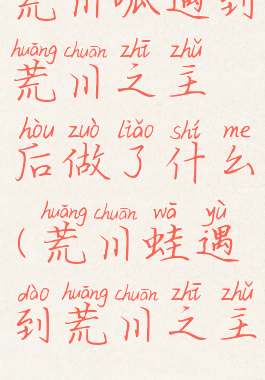 荒川呱遇到
huāng chuān zhī zhǔ
荒川之主
hòu zuò liǎo shí me
后做了什么
huāng chuān wā yù
（荒川蛙遇
dào huāng chuān zhī zhǔ
到荒川之主